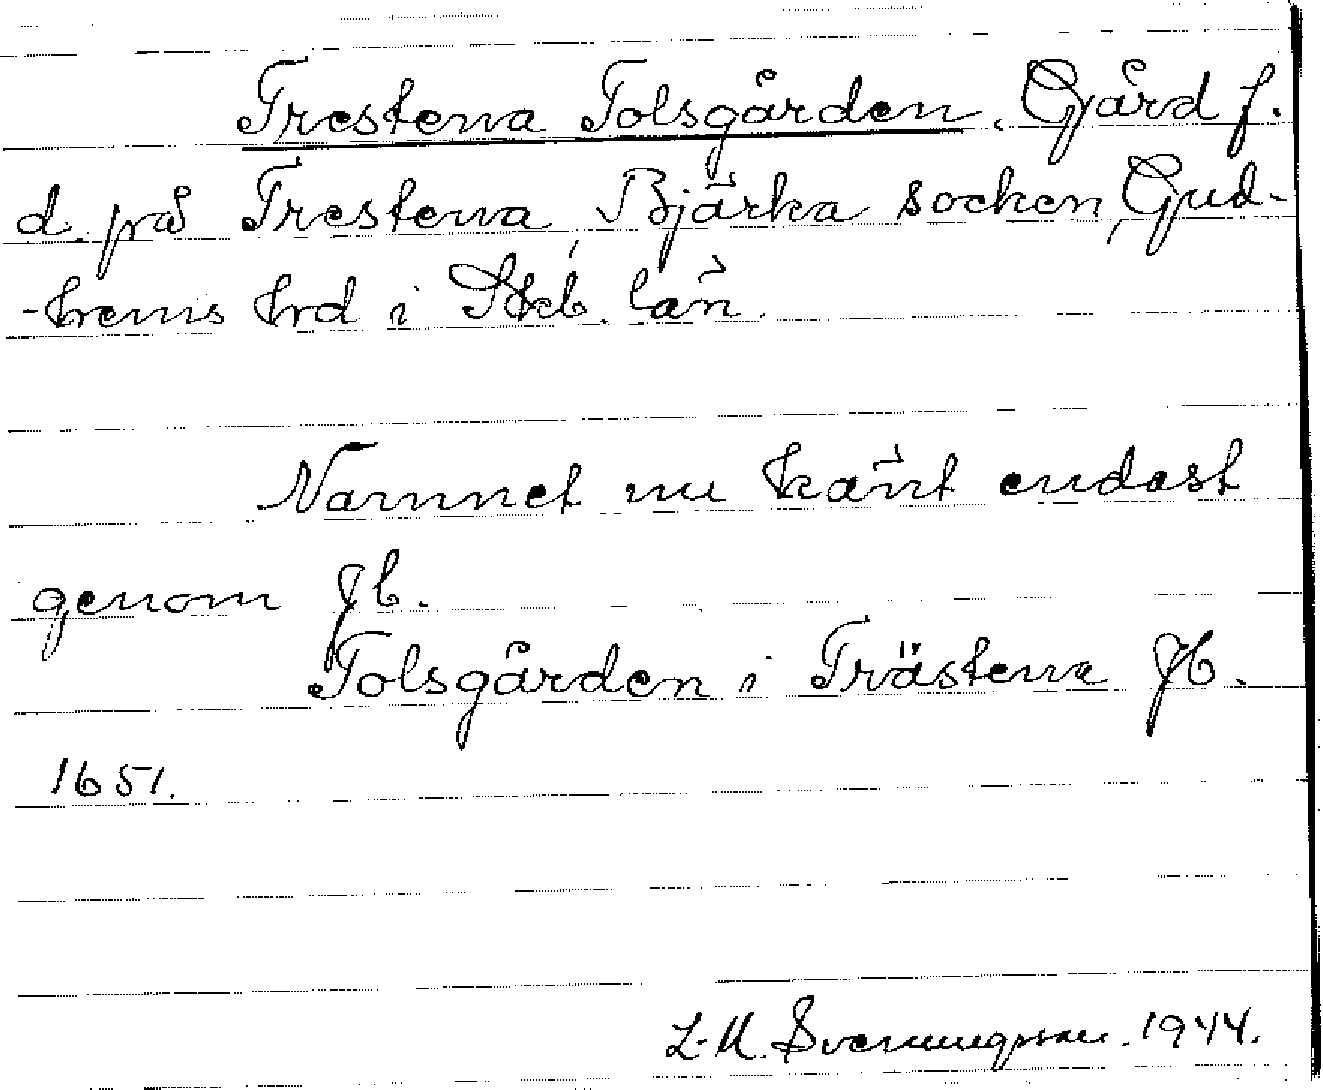 Trestena Tolsgården. Gård f.
d. på Trestena, Bjärka socken, Gud-
-hems hrd i Skb. län.
Namnet nu känt endast
genom Jb.
Tolsgården i Trästena Jb.
1651.
L-M. Svenungsson. 1944.